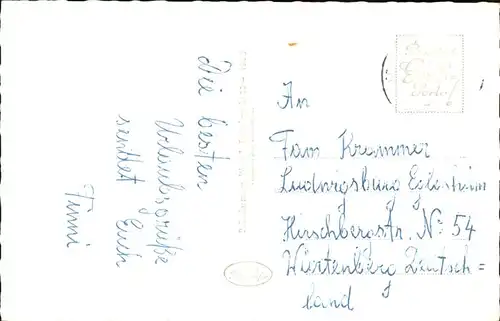 Die besten
Urlaubsgrüße
sendet Euch
Finni
An
Fam Krammer
Ludwigsburg Eglosheim
Hirschbergstr. No 54
Würtenberg Deutsch=
land